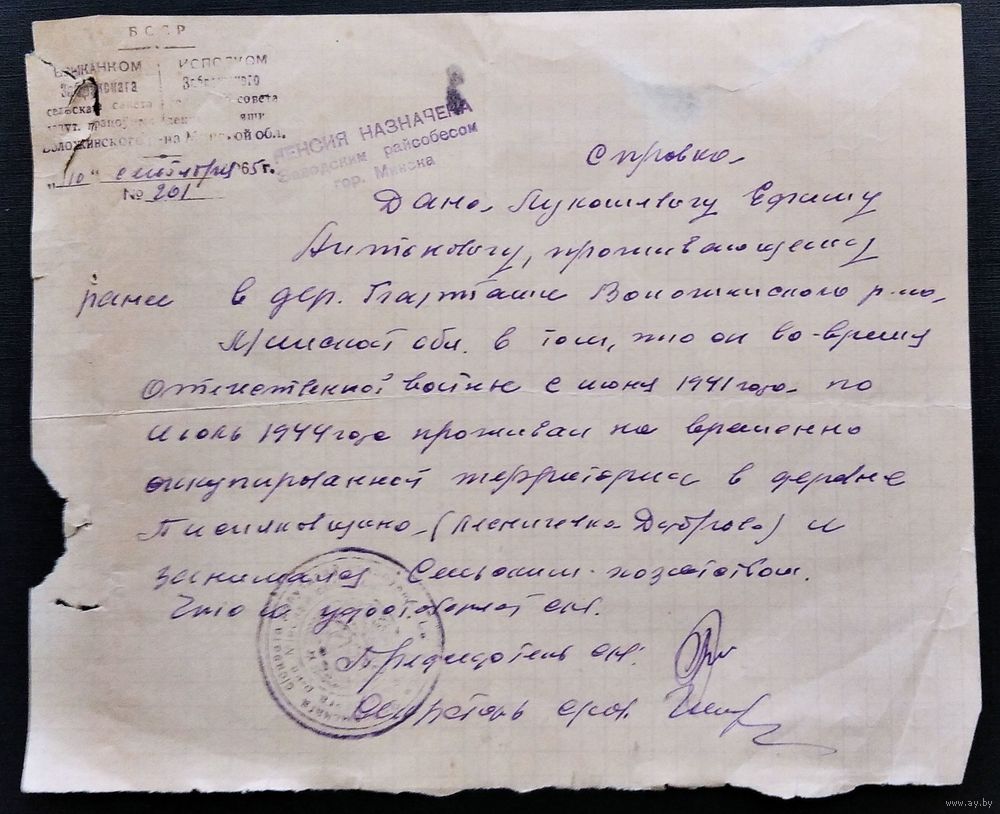 БССР
ВЫКАНКОМ ИСПОЛКОМ
Забрезского
совета
Воложинского обл.
"10" сентября 1965 г.
№ 201
ПЕНСИЯ НАЗНАЧЕНА
Заводским райсобесом
гор. Минска
Справка
Дана Лукашевичу Ефиму
Антоновичу, проживающему
ранее в дер. Воложинского р-на,
Минской обл. в том, что он во-время
Отечественной войны с июня 1941 года по
Июль 1944 года проживал на временно
оккупированной территории в деревне
(лесничевка Дуброва) и
занимался Сельским-хозяйством.
Что и удостоверяет с/с.
Председатель с/с.
Секретарь с/сов.
www.ay.by